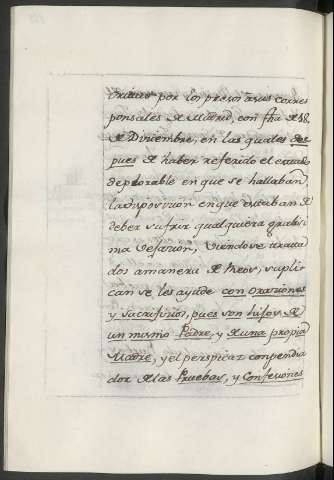 critas por los presos à sus corres
ponsales de Madrid, con fha de 18.
de Diciembre, en las quales des
pues de haber referido el estado
deplorable en que se hallaban,
la disposicion en que estaban de
deber sufrir qualquiera gravisi
ma vejacion, viendose trata
dos a manera de Reos, supli
can se les ayude con oraziones
y sacrificios, pues son hijos de
un mismo Padre, y de una propia
Madre, y el perspicaz compendia
dor de las Pruebas, y Confesiones